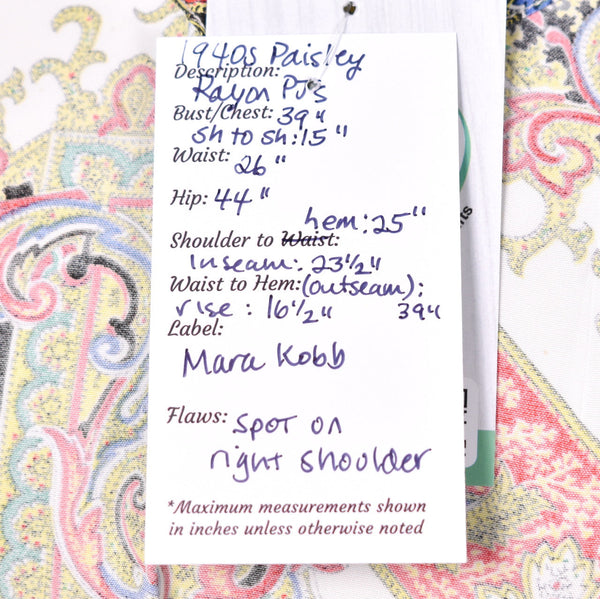 1940s Paisley
Description:
Rayon PJ's
Bust/Chest: 39"
sh to sh: 15"
Waist: 26"
Hip: 44"
hem: 25"
Shoulder to Waist:
Inseam: 23 1/2"
Waist to Hem: (outseam):
rise: 16 1/2" 39"
Label:
Mara Kobb
Flaws: Spot on
right shoulder
*Maximum measurements shown
in inches unless otherwise noted